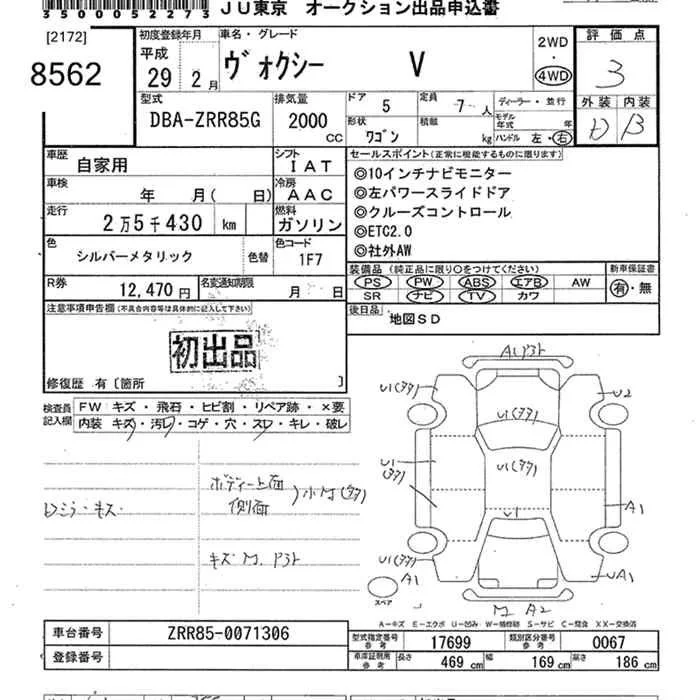 35000522273
JU東京 オークション出品申込書
[2172]
8562
初度登録年月
平成
29 2 月
車名・グレード
ヴォクシー V
2WD
・
4WD
評価点
3
型式
DBA-ZRR85G
排気量
2000
CC
ドア 5
定員 7 人
ディーラー・並行
形状 ワゴン
積載 kg
モデル年式 年
ハンドル 左・右
外装 内装
D B
車歴
自家用
シフト
IAT
車検
年 月( 日)
冷房
AAC
走行
2万5千430 km
燃料
ガソリン
色
シルバーメタリック
色替
色コード
1F7
R券
12,470円
名変通知期限
月 日
セールスポイント(正常に機能するものに限ります)
◎10インチナビモニター
◎左パワースライドドア
◎クルーズコントロール
◎ETC2.0
◎社外AW
装備品(純正品に限り○をつけてください)
PS PW ABS エアB AW
SR ナビ TV カワ
新車保証書
有・無
後日品
地図SD
注意事項申告欄(不具合内容等は具体的に記入して下さい)
初出品
修復歴 有〔箇所 〕
検査員
記入欄
FW キズ・飛石・ヒビ割・リペア跡・×要
内装 キズ・汚レ・コゲ・穴・スレ・キレ・破レ
ドミラーキズ
ボディー上面
側面
キズ M.
A1
U1
U2
U1
U1
U1
U1
A1
U1
A1
UA1
スペア
M A2
A-キズ E-エクボ U-凹み W-補修跡 S-サビ C-腐食 XX-交換済
車台番号
ZRR85-0071306
登録番号
型式指定番号
参考
17699
類別区分番号
参考
0067
車庫証明用
参考
長さ 469 cm
幅 169 cm
高さ 186 cm